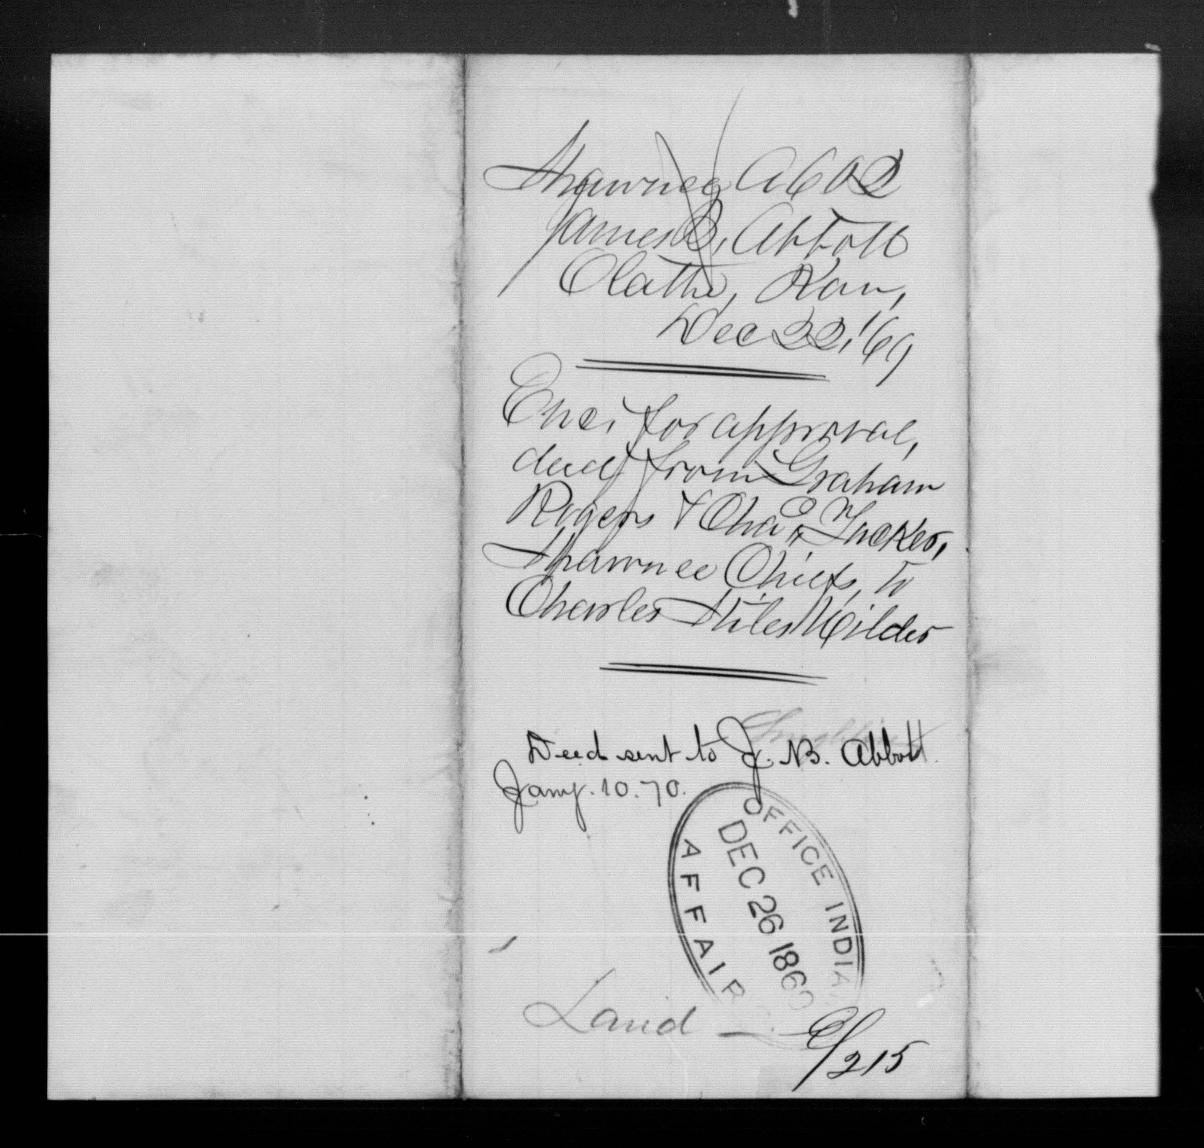 Shawnee A 602
James B. Abbott
Olathe, Kan,
Dec 22, '69
Enc. for approval,
deed from Graham
Rogers & Chas Tucker,
Shawnee Chiefs, to
Charles Stiles Wilder
Deed sent to J. B. Abbott.
Jany. 10. 70.
OFFICE INDIA
DEC 26 1869
AFFAIR
Land
2/215